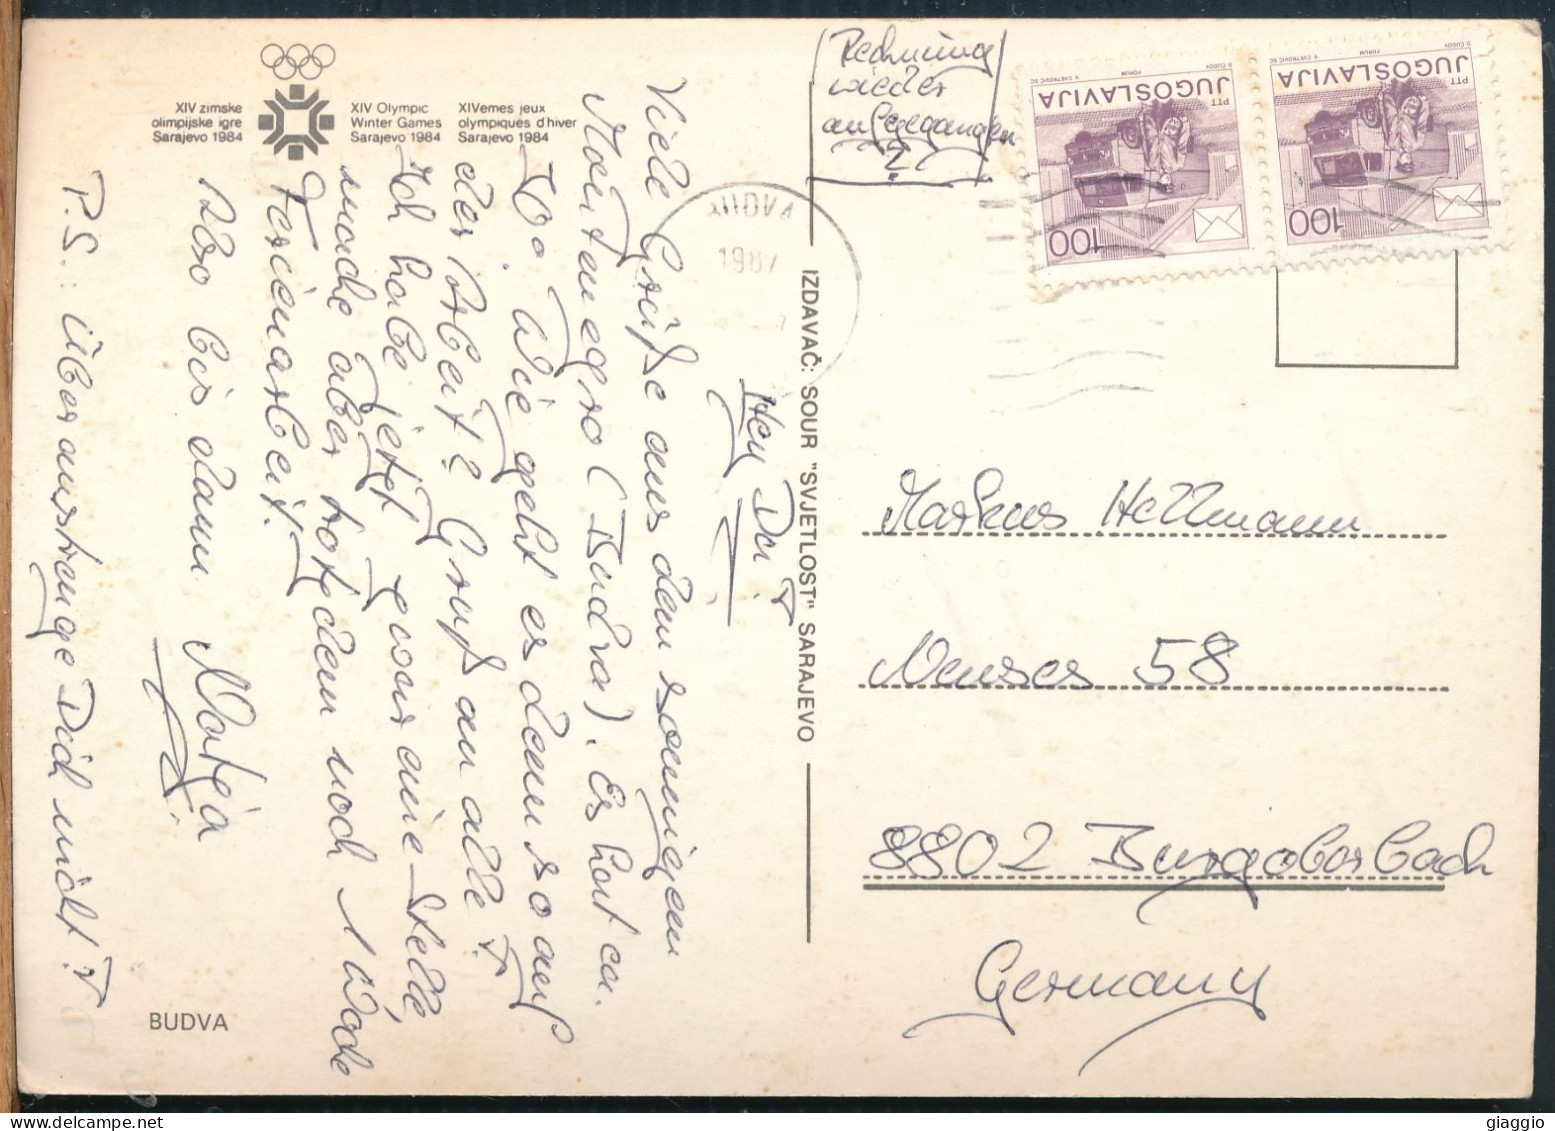 XIV zimske
olimpijske igre
Sarajevo 1984
XIV Olympic
Winter Games
Sarajevo 1984
XIVemes jeux
olympiques d'hiver
Sarajevo 1984
Hey Du!
Viele Grüße aus dem sonnigen
Montenegro (Budva). Es hat ca.
30°. Wie geht es denn so auf
der Arbeit? Gruß an alle!
Ich habe jetzt zwar eine Stelle,
mache aber trotzdem noch 1 Woche
Ferienarbeit.
Also bis dann
P.S.: Überanstrenge Dich nicht!
BUDVA
IZDAVAČ: SOUR "SVJETLOST" SARAJEVO
BUDVA
1987
Rechnung
wieder
aufgegangen
?
PTT
JUGOSLAVIJA
100
FORUM
V. CVETKOVIĆ SC
PTT
JUGOSLAVIJA
100
FORUM
V. CVETKOVIĆ SC
Markus Hellmann
Neuses 58
8802 Burgoberbach
Germany
giaggio